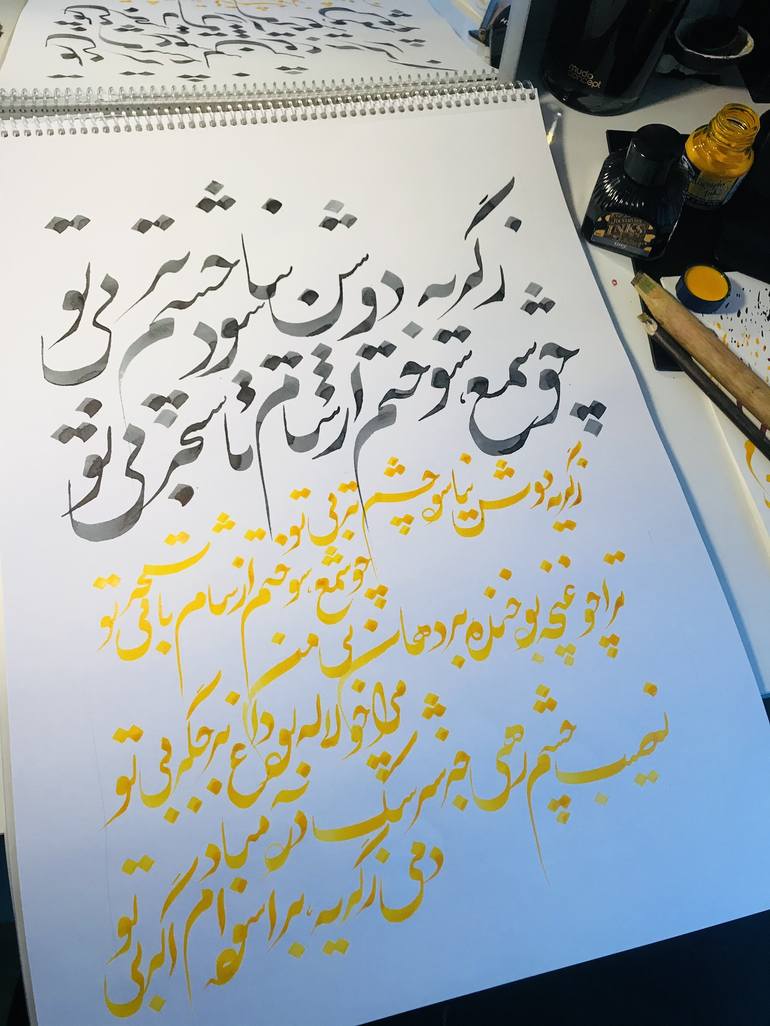 ز گریه دوش نیاسود چشم تر بی تو
چو شمع سوختم از شام تا سحر بی تو
ز گریه دوش نیاسود چشم تر بی تو
چو شمع سوختم از شام تا سحر بی تو
ترا چو غنچه بود خنده بر دهان بی من
مرا چو لاله بود داغ بر جگر بی تو
نصیب چشم رهی جز سرشک مباد
دمی ز گریه بر آسوده ام اگر بی تو
mudo
concept
INKS